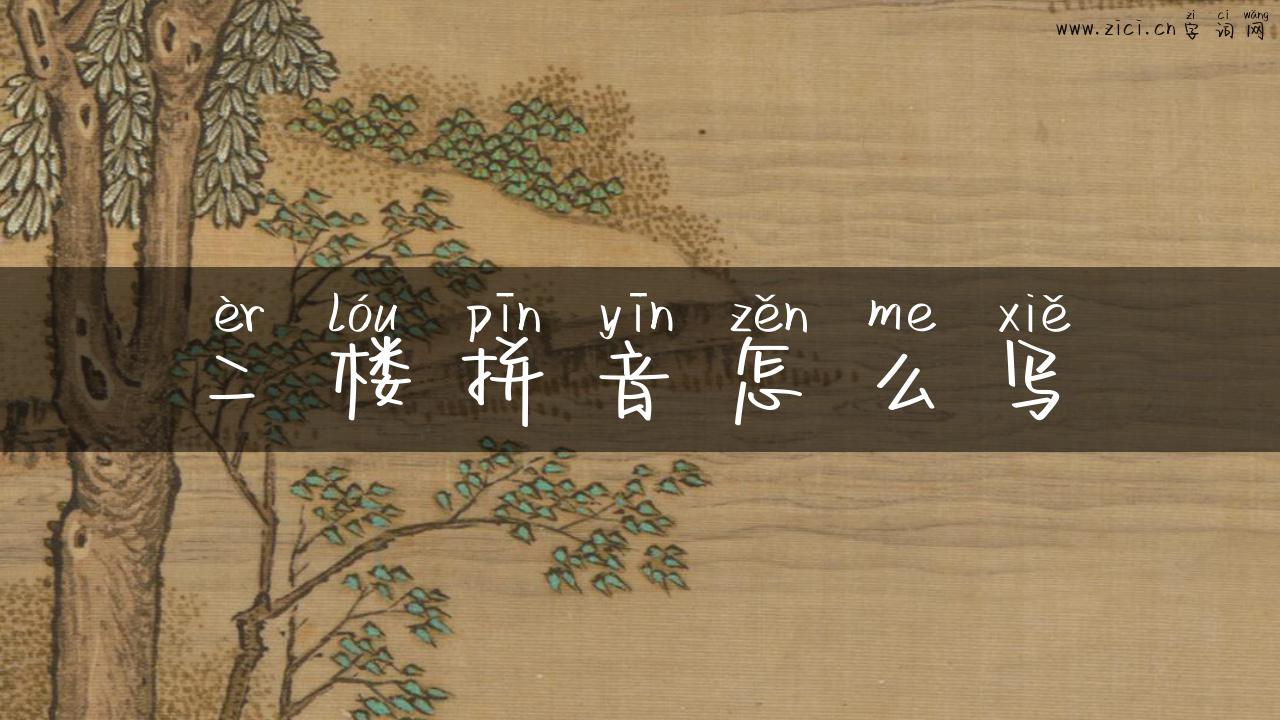 zì cí wǎng
www.zici.cn 字 词 网
èr lóu pīn yīn zěn me xiě
二 楼 拼 音 怎 么 写